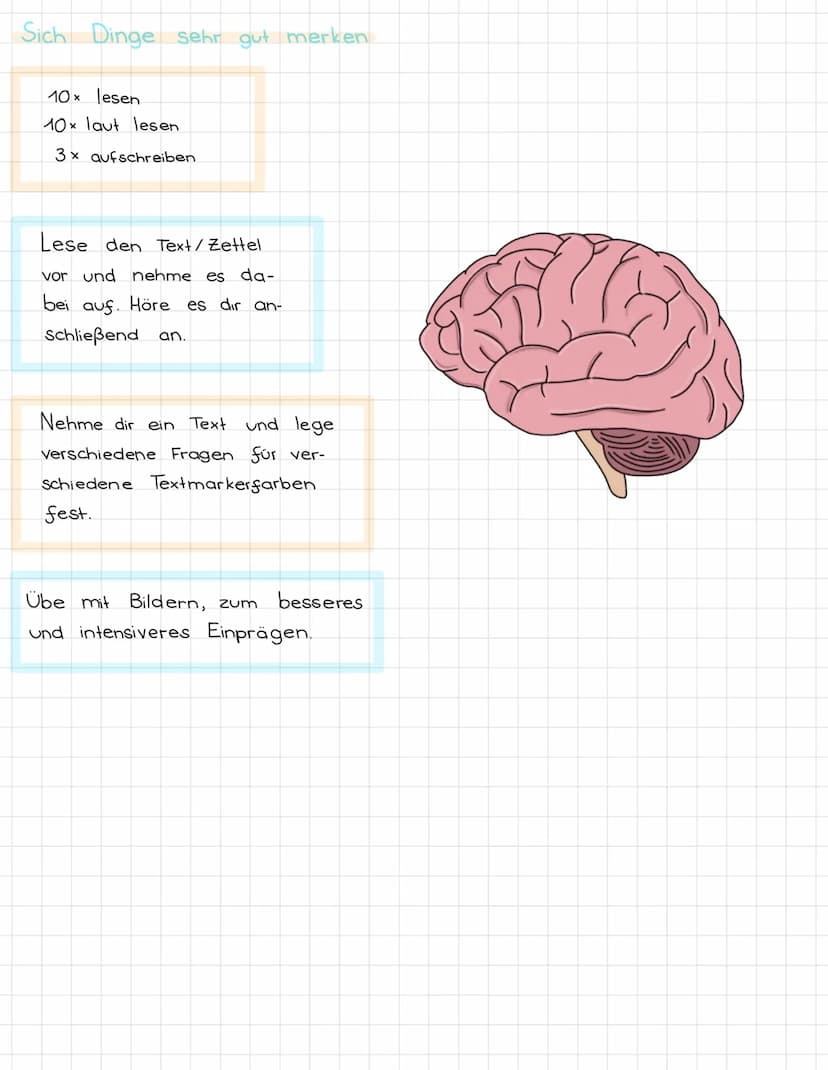 Sich Dinge sehr gut merken
10x lesen
10x laut lesen
3x aufschreiben
Lese den Text/Zettel
vor und nehme es da-
bei auf. Höre es dir an-
schließend an.
Nehme dir ein Text und lege
verschiedene Fragen für ver-
schiedene Textmarkerfarben
fest.
Übe mit Bildern, zum besseres
und intensiveres Einprägen.